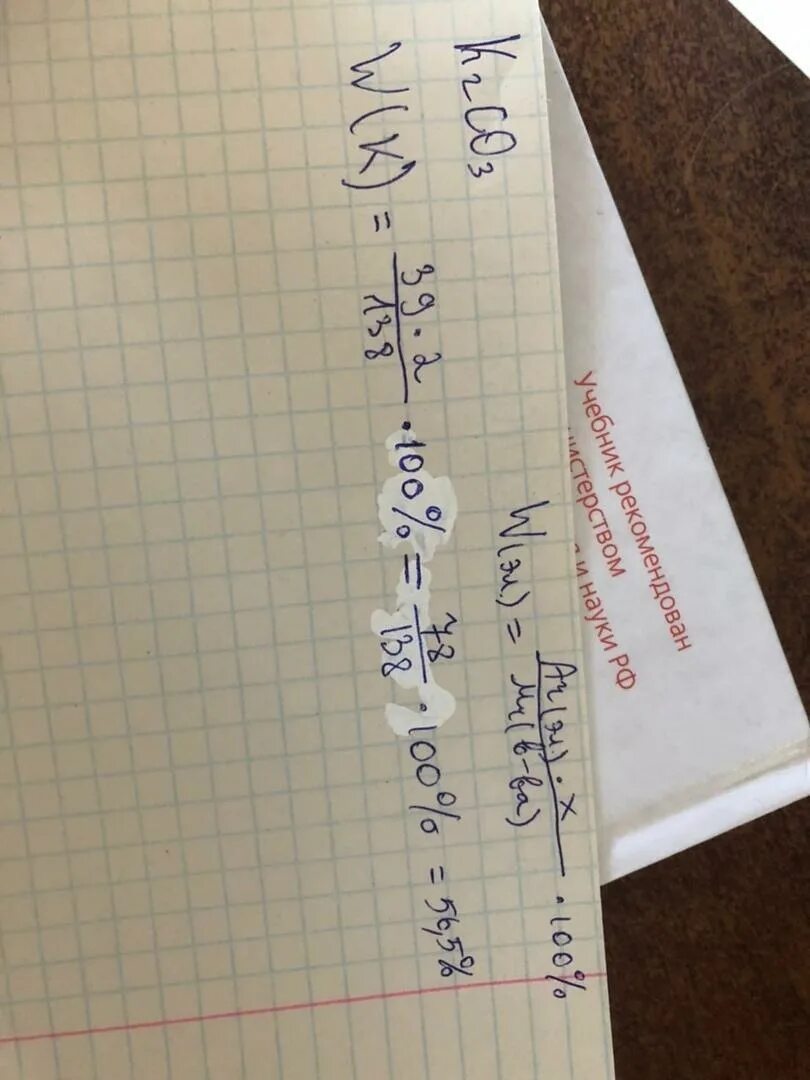 K₂CO₃
W(эл.) = Ar(эл.) · x / Mr(в-ва) · 100%
W(K) = 39 · 2 / 138 · 100% = 78 / 138 · 100% = 56,5%
Учебник рекомендован
нистерством
и науки РФ